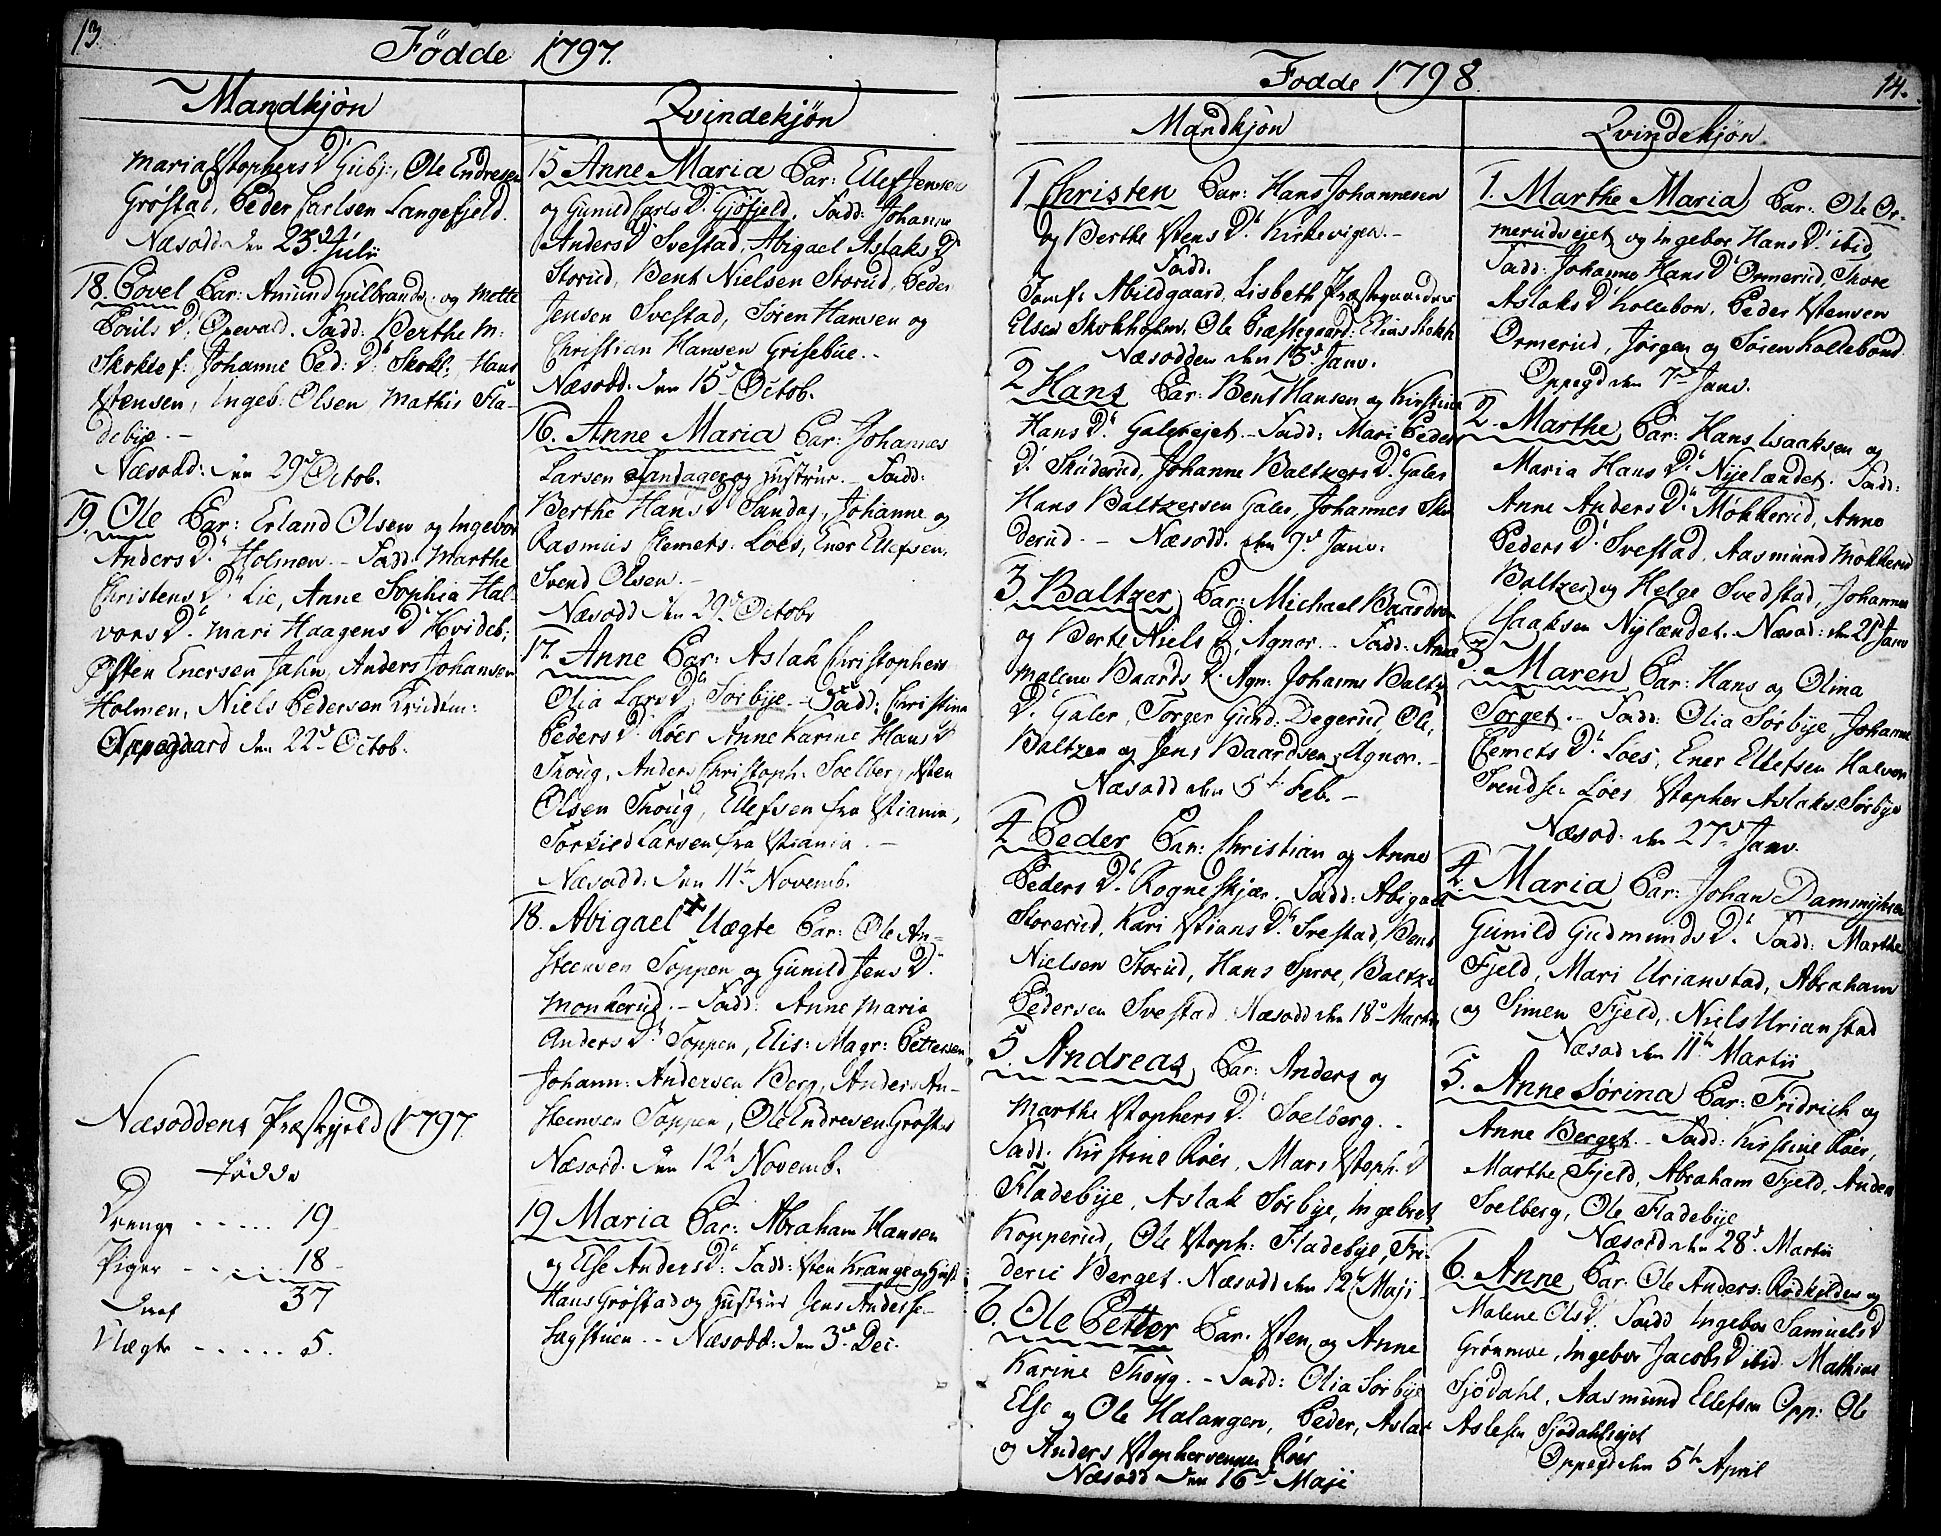 13.
Fødde 1797.
Mandkjøn
Maria Stophers D. Gubj:, Ole Endresen
Grøstad, Peder Carlsen Langefjeld.
Næsodd. den 23d Julii
18. Povel Par: Amund Gulbrands: og Mette
Pouls D. Orevald. Fadd: Berthe M:
Skoklef: Johanne Ped: D. Skokl: Hans
Stensen, Ingeb: Olsen Mathis Fla-
debye. -
Næsodd: den 29d Octob.
19. Ole Par: Erland Olsen og Ingebor
Anders D. Holmen. - Fadd: Marthe
Christens D. Lie, Anne Sophia Hal-
vors D. Mari Haagens D. Hvideb:
Østen Enersen Jahn, Anders Johansen
Holmen, Niels Pedersen
Oppegaard den 22d Octob.
Næsoddens Præstgjeld 1797.
Fødde
Drenge ..... 19
Piger ..... 18
37
Uægte ..... 5.
Qvindekjøn
15 Anne Maria Par: Ellef Jensen
og Gunild Carls D. Gjøfjeld. Fadd: Johanne
Anders D. Svestad, Abigael Aslaks D
Storud, Bent Nielsen Storud, Peder
Jensen Svestad, Søren Hansen og
Christian Hansen Grisebue. -
Næsodd: den 15d Octob.
16. Anne Maria Par: Johannes
Larsen Sandager og Hustrue. - Fadd:
Berthe Hans D Sandag:, Johanne og
Rasmus Clemets. Loes, Ener Ellefsen,
Svend Olsen. -
Næsodd den 29d Octobr
17. Anne Par: Aslak Christophers
Olia Lars D. Sørbye. - Fadd: Christina
Peders D. Roer Anne Karine Hans D
Thoug, Anders Christoph: Soelber, Sten
Olsen Thoug, Ellefsen fra Stiania,
Torkild Larsen fra Stiania. -
Næsodd. den 11te Novemb.
18. Abigael + Uægte Par: Ole An-
steensen Toppen og Gunild Jens D.
Monkerud. - Fadd: Anne Maria
Anders D. Toppen, Elis: Magr: Pettersen
Johann: Andersen Berg, Anders An-
steensen Toppen, Ole Endresen Grøstad
Næsodd. den 12te Novemb.
19 Maria Par: Abraham Hansen
og Else Anders D. Fadd: Sten Krange og Hust:
Hans Grøstad og Hustrue Jens Anderse-
Sagstuen. - Næsodd: den 3d Dec.
Fødde 1798.
14.
Mandkjøn
1 Christen Par: Hans Johannesen
og Berthe Stens D. Kirkevigen. -
Fadd.
Jomf: Abildgaard, Lisbeth Præstegaarden
Elsen Skokholm, Ole Præstegaard: Elias Stokh
Næsodden den 15d Janv.
2 Hans Par: Bent Hansen og Kirstine
Hans D. Galerejet. - Fadd: Mari Peder
D. Skuderud, Johanne Baltzers D. Galer
Hans Baltzersen Galer, Johannes Sku
derud. - Næsodd. den 9d Janv.
3. Baltzer Par: Michael Baardsen
og Berte Niels D. Agnor. - Fadd: Anne
Malene Baards D. Agn: Johanne Baltz
D. Galer, Torger Gund: Degerud, Ole,
Baltzen og Jens Baardsen Agnor. -
Næsodd den 5te Feb. -
4 Peder Par: Christian og Anne
Peders D. Rogneskjær. Fadd: Abigael
Storerud, Kari Stians D. Svestad, Bent
Nielsen Storud, Hans Sproe, Baltze
Pedersen Svestad. Næsodd den 18d Martii
5. Andreas Par: Anders og
Marthe Stophers D. Soelberg. -
Fadd: Kirstine Roer, Mari Stoph: D
Fladebye, Aslak Sørbye, Ingebret
Kopperud, Ole Stoph: Fladebye, Fri-
deric Berget. Næsodd den 12te Maji
6. Ole Petter Par. Sten og Anne
Karine Thoug. - Fadd: Olia Sørbye
Else og Ole Halangen, Peder, Aslak
og Anders Stophersennen Roer
Næsodd den 16d Maji
Qvindekjøn.
1. Marthe Maria Par: Ole Or-
merudsejet og Ingebor Hans D. ibid.
Fadd: Johanne Hans D. Ormerud, Thore
Aslaks D Kollebon, Peder Stensen
Ormerud, Jørgen og Søren Kollebond.
Oppegd den 7d Janv.
2. Marthe Par: Hans Isaaksen og
Maria Hans D. Nyelændet. Fadd:
Anne Anders D. Møkkerud, Anne
Peders D. Svestad. Aasmund Møkkerud
Baltzer og Helge Svedstad, Johannes
Isaaksen Nylændet. Næsod: den 21d Janv
3. Maren Par: Hans og Olina
Torget. - Fadd: Olia Sørbye, Johanne
Clemets D. Loes, Ener Ellefsen Halvor
Svendse- Loes Stopher Aslaks: Sørbye
Næsod. den 27d Janv.
4. Maria Par: Johan
Gunild Gudmunds D. Fadd: Marthe
Fjeld, Mari Urianstad, Abraham
og Simen Fjeld, Niels Urianstad
Næsod den 11te Martii
5. Anne Sørina Par: Fridrich og
Anne Berget. - Fadd: Kirstine Roer,
Marthe Fjeld, Abraham Fjeld, Anders
Soelberg, Ole Fladebye
Næsodd den 28d. Martii
6. Anne Par: Ole Anders: Rødkilden og
Malene Ols D. Fadd Ingebor Samuels D
Grønmoe, Ingebor Jacobs D ibid. Mathias
Sjødahl, Aasmund Ellefsen Opp: Ole
Aslesen Sjødahlsejet
Oppegd den 5te April